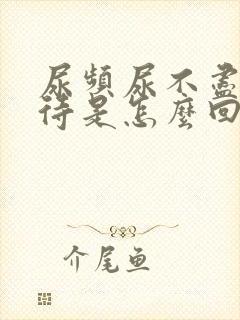 尿頻尿不盡
待是怎麼回
介尾鱼